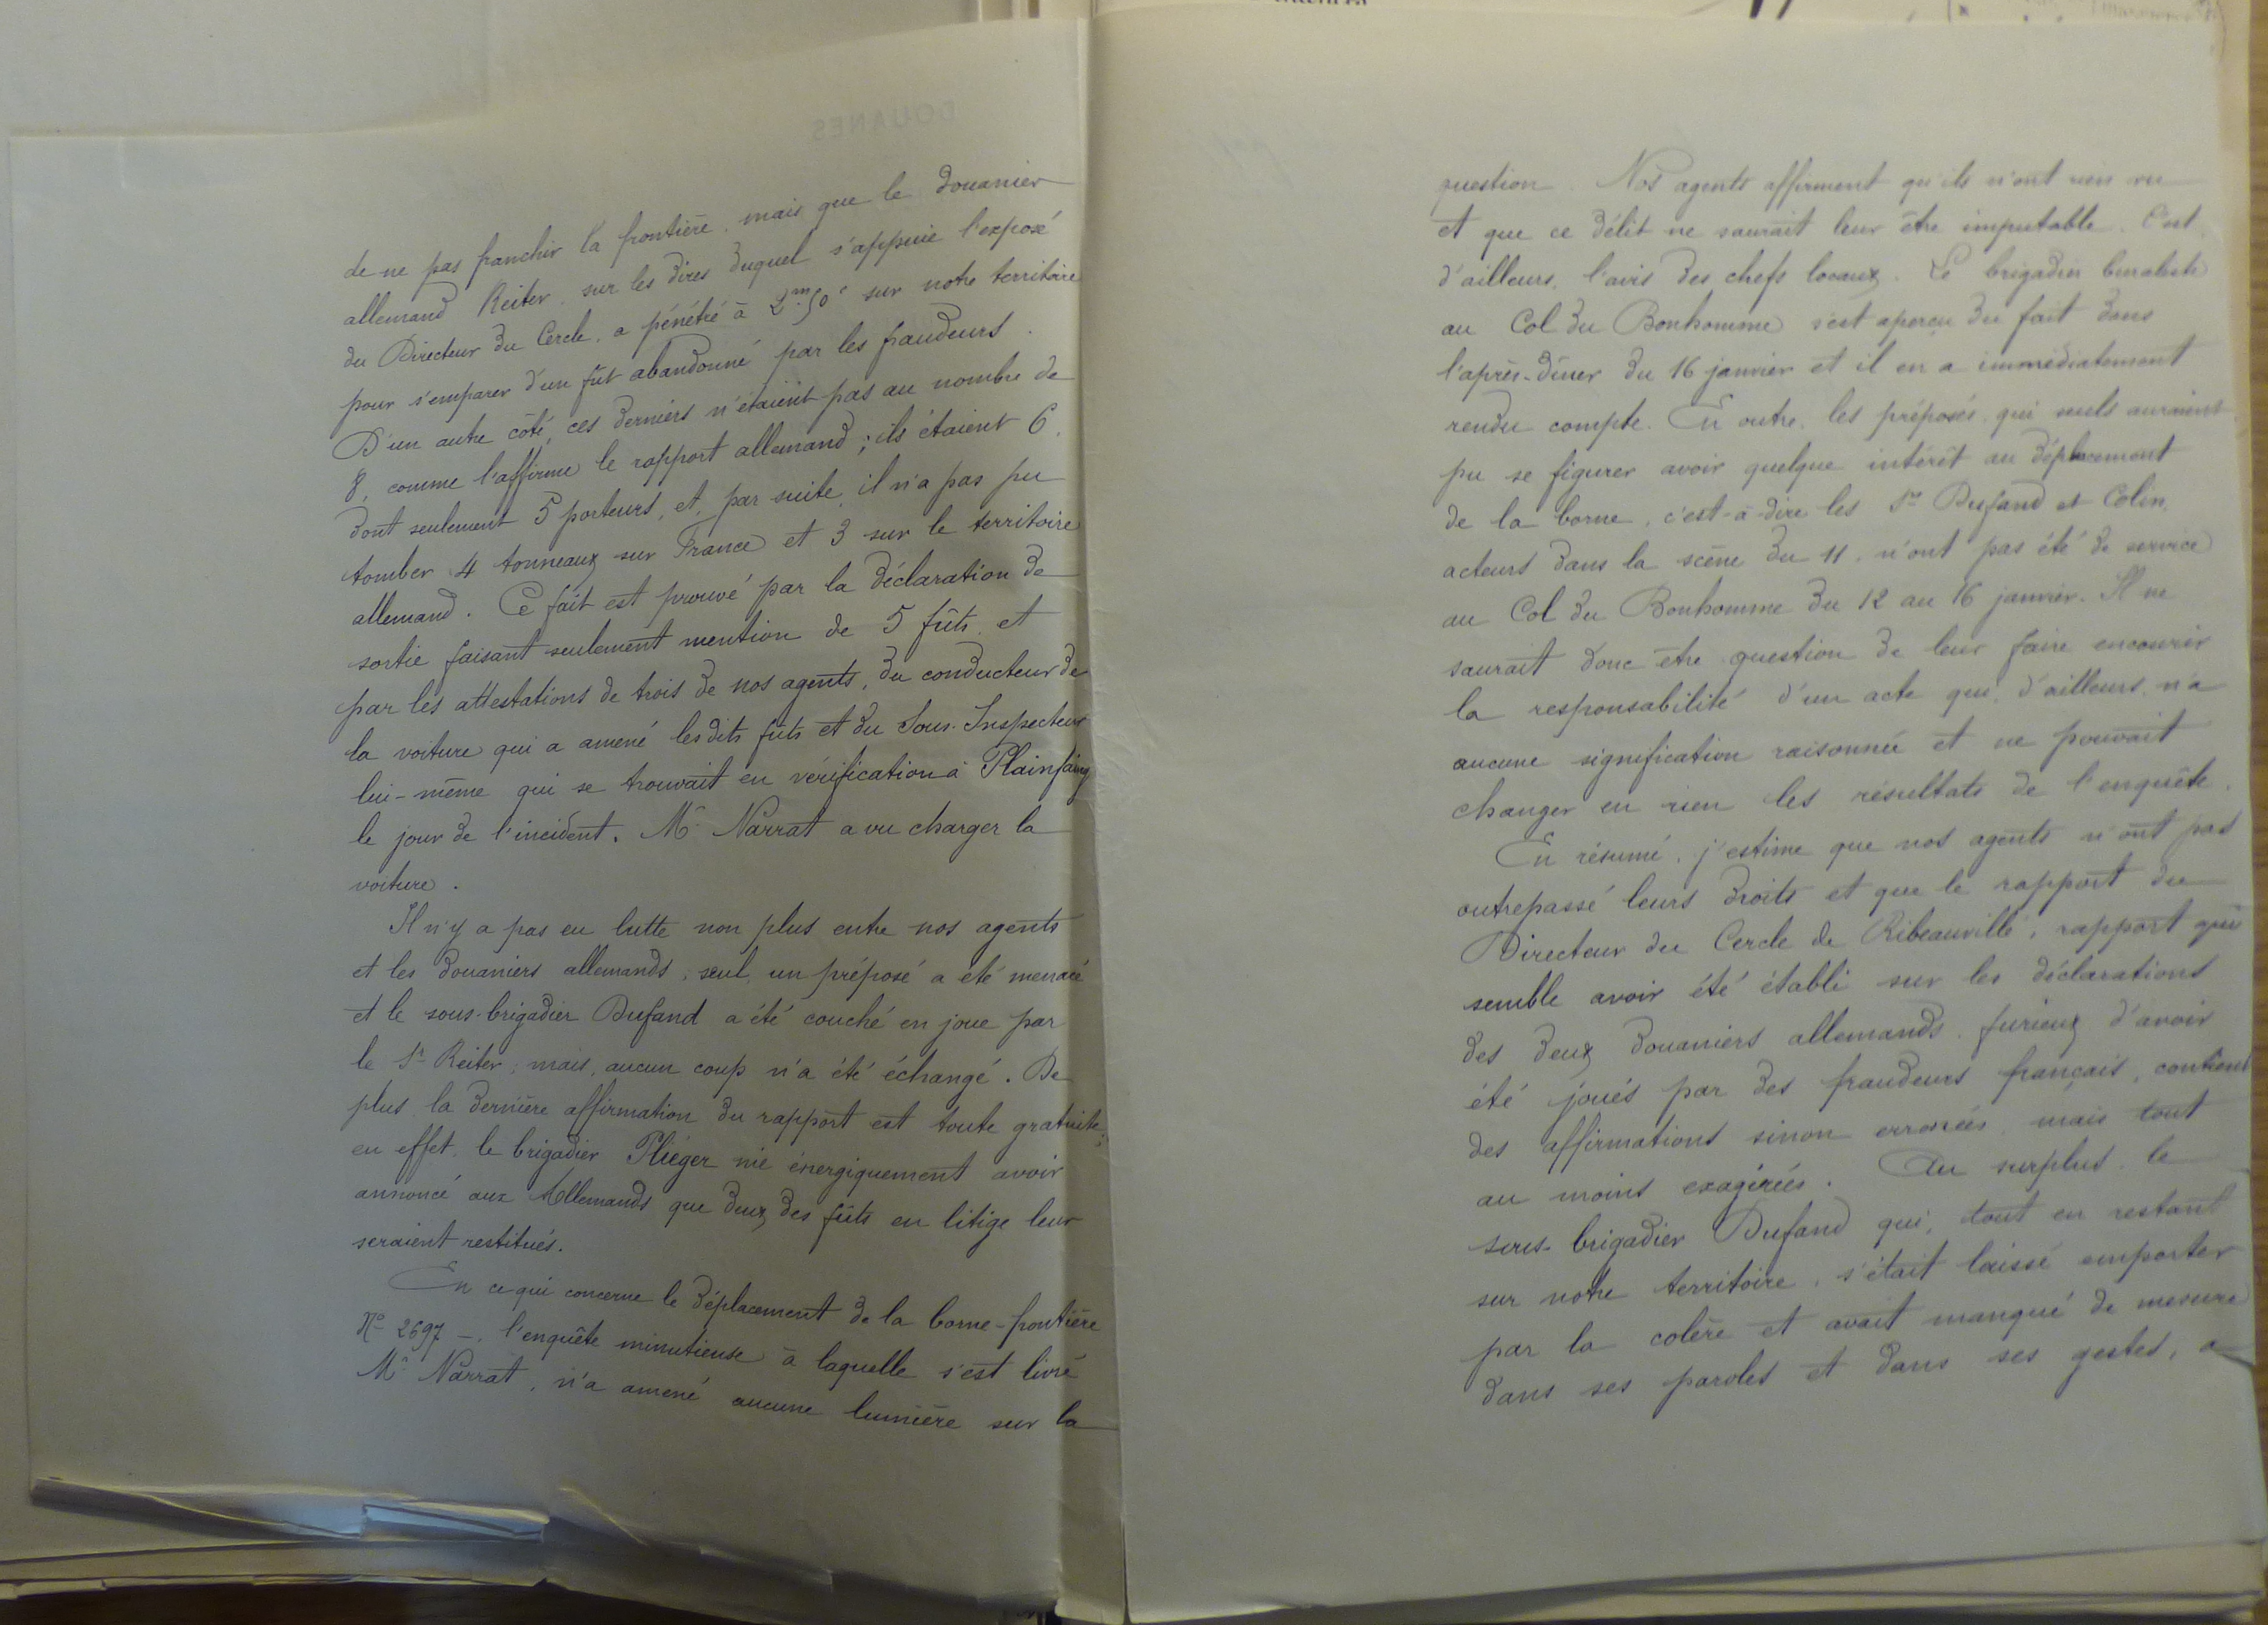 de ne pas franchir la frontière, mais que le douanier
allemand Reiter, sur les dires duquel s'appuie l'exposé
du Directeur du Cercle, a pénétré à 2m,50c sur notre territoire
pour s'emparer d'un fût abandonné par les fraudeurs.
D'un autre côté, ces derniers n'étaient pas au nombre de
8, comme l'affirme le rapport allemand ; ils étaient 6,
dont seulement 5 porteurs, et, par suite, il n'a pas pu
tomber 4 tonneaux sur France et 3 sur le territoire
allemand. Ce fait est prouvé par la déclaration de
sortie faisant seulement mention de 5 fûts, et
par les attestations de trois de nos agents, du conducteur de
la voiture qui a amené lesdits fûts et du Sous-Inspecteur
lui-même qui se trouvait en vérification à Plainfaing
le jour de l'incident. Mr Narrat a vu charger la
voiture.
Il n'y a pas eu lutte non plus entre nos agents
et les douaniers allemands ; seul, un préposé a été menacé
et le sous-brigadier Dufand a été couché en joue par
le Sr Reiter ; mais, aucun coup n'a été échangé. De
plus, la dernière affirmation du rapport est toute gratuite ;
en effet, le brigadier Pliéger nie énergiquement avoir
annoncé aux Allemands que deux des fûts en litige leur
seraient restitués.
En ce qui concerne le déplacement de la borne-frontière
No 2697 -, l'enquête minutieuse à laquelle s'est livré
Mr Narrat, n'a amené aucune lumière sur la
question. Nos agents affirment qu'ils n'ont rien vu
et que ce délit ne saurait leur être imputable. C'est,
d'ailleurs, l'avis des chefs locaux. Le brigadier
au Col du Bonhomme s'est aperçu du fait dans
l'après-dîner du 16 janvier et il en a immédiatement
rendu compte. En outre, les préposés qui seuls auraient
pu se figurer avoir quelque intérêt au déplacement
de la borne, c'est-à-dire les Srs Dufand et Colin,
acteurs dans la scène du 11, n'ont pas été de service
au Col du Bonhomme du 12 au 16 janvier. Il ne
saurait donc être question de leur faire encourir
la responsabilité d'un acte qui, d'ailleurs, n'a
aucune signification raisonnée et ne pouvait
changer en rien les résultats de l'enquête.
En résumé, j'estime que nos agents n'ont pas
outrepassé leurs droits et que le rapport du
Directeur du Cercle de Ribeauvillé, rapport qui
semble avoir été établi sur les déclarations
des deux douaniers allemands, furieux d'avoir
été joués par des fraudeurs français, contient
des affirmations sinon erronées, mais tout
au moins exagérées. Au surplus, le
sous-brigadier Dufand qui, tout en restant
sur notre territoire, s'était laissé emporter
par la colère et avait manqué de mesure
dans ses paroles et dans ses gestes, a